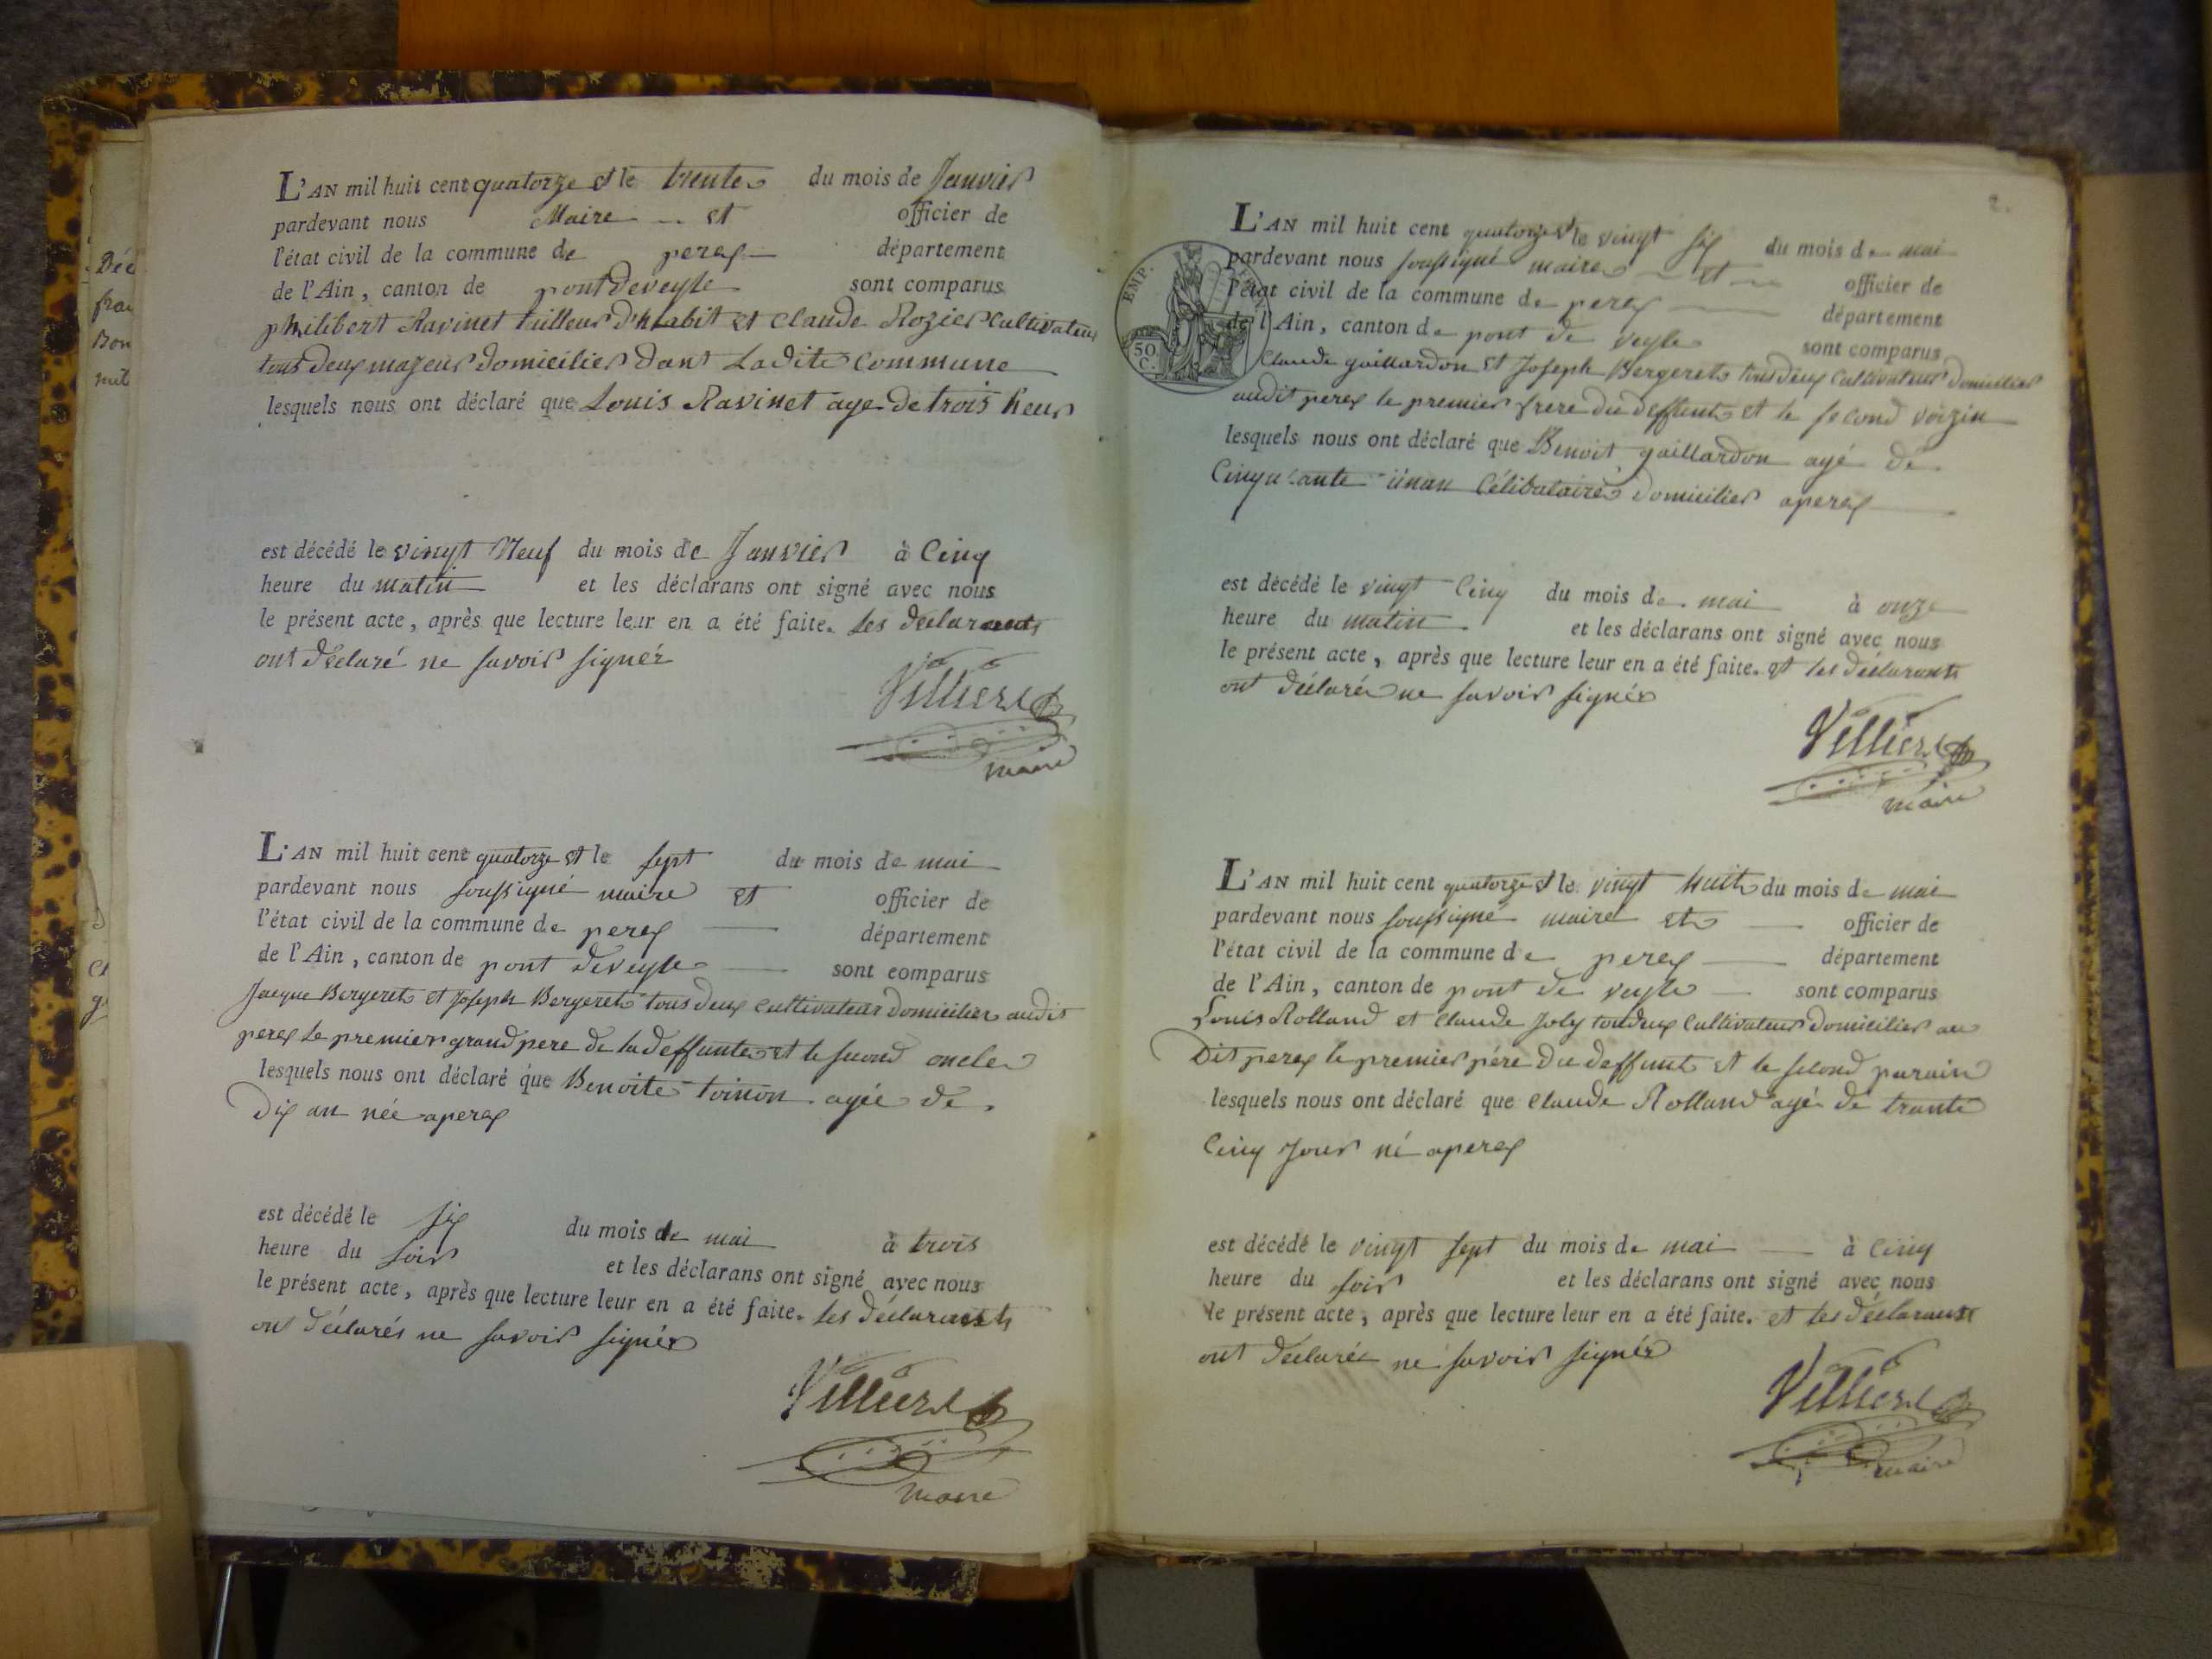 L'AN mil huit cent quatorze et le trente du mois de Janvier
pardevant nous Maire et officier de
l'état civil de la commune de perex département
de l'Ain, canton de pontdeveyle sont comparus
philibert Ravinet tailleur d'habit et claude Rozier Cultivateur
tous deux majeur domicilier dans Ladite Commune
lesquels nous ont déclaré que Louis Ravinet age de trois heur
est décédé le vingt Neuf du mois de Janvier à Cinq
heure du matin et les déclarans ont signé avec nous
le présent acte, après que lecture leur en a été faite. les déclarants
ont déclaré ne savoir signér
Villiers
maire
L'AN mil huit cent quatorze et le sept du mois de mai
pardevant nous soussigné maire et officier de
l'état civil de la commune de perex département
de l'Ain, canton de pont deveyle sont comparus
Jacque Bergeret et Joseph Bergeret tous deux cultivateur domicilier audit
perex le premier grand pere de la deffunte et le second oncle
lesquels nous ont déclaré que Benoite toinon agée de
dix an née aperex
est décédé le six du mois de mai à trois
heure du soir et les déclarans ont signé avec nous
le présent acte, après que lecture leur en a été faite. les déclarants
ont déclarés ne savoir signér
Villiers
maire
2.
L'AN mil huit cent quatorze et le vingt six du mois de mai
pardevant nous soussigné maire et officier de
l'état civil de la commune de perex département
de l'Ain, canton de pont de veyle sont comparus
EMP.
50
C.
Claude gaillardon et Joseph Bergeret tous deux Cultivateur domicilier
audit perex le premier frere du deffunt et le second voizin
lesquels nous ont déclaré que Benoit gaillardon agé de
Cinquante unan Célibataire domicilier aperex
est décédé le vingt Cinq du mois de mai à onze
heure du matin et les déclarans ont signé avec nous
le présent acte, après que lecture leur en a été faite. et les déclarants
ont déclaré ne savoir signér
Villiers
maire
L'AN mil huit cent quatorze et le vingt huit du mois de mai
pardevant nous soussigné maire et officier de
l'état civil de la commune de perex département
de l'Ain, canton de pont de veyle sont comparus
Louis Rolland et claude Joly toudeux Cultivateur domicilier au
Dit perex le premier pére du deffunt et le second parain
lesquels nous ont déclaré que claude Rolland agé de trante
Cinq Jour né aperex
est décédé le vingt sept du mois de mai à Cinq
heure du soir et les déclarans ont signé avec nous
le présent acte, après que lecture leur en a été faite. et les déclarants
ont déclaré ne savoir signér
Villiers
maire